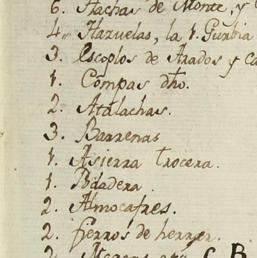 6. Hachas de Monte, y
4. Hazuelas, la 1. Gurbia
3. Escoplos de Arados y Ca
1. Compas dho.
2. Atalachas.
3. Barrenas
1. Asierra trocera.
1. Bdadera.
2. Almocafres.
2. fierros de herrar.
2.